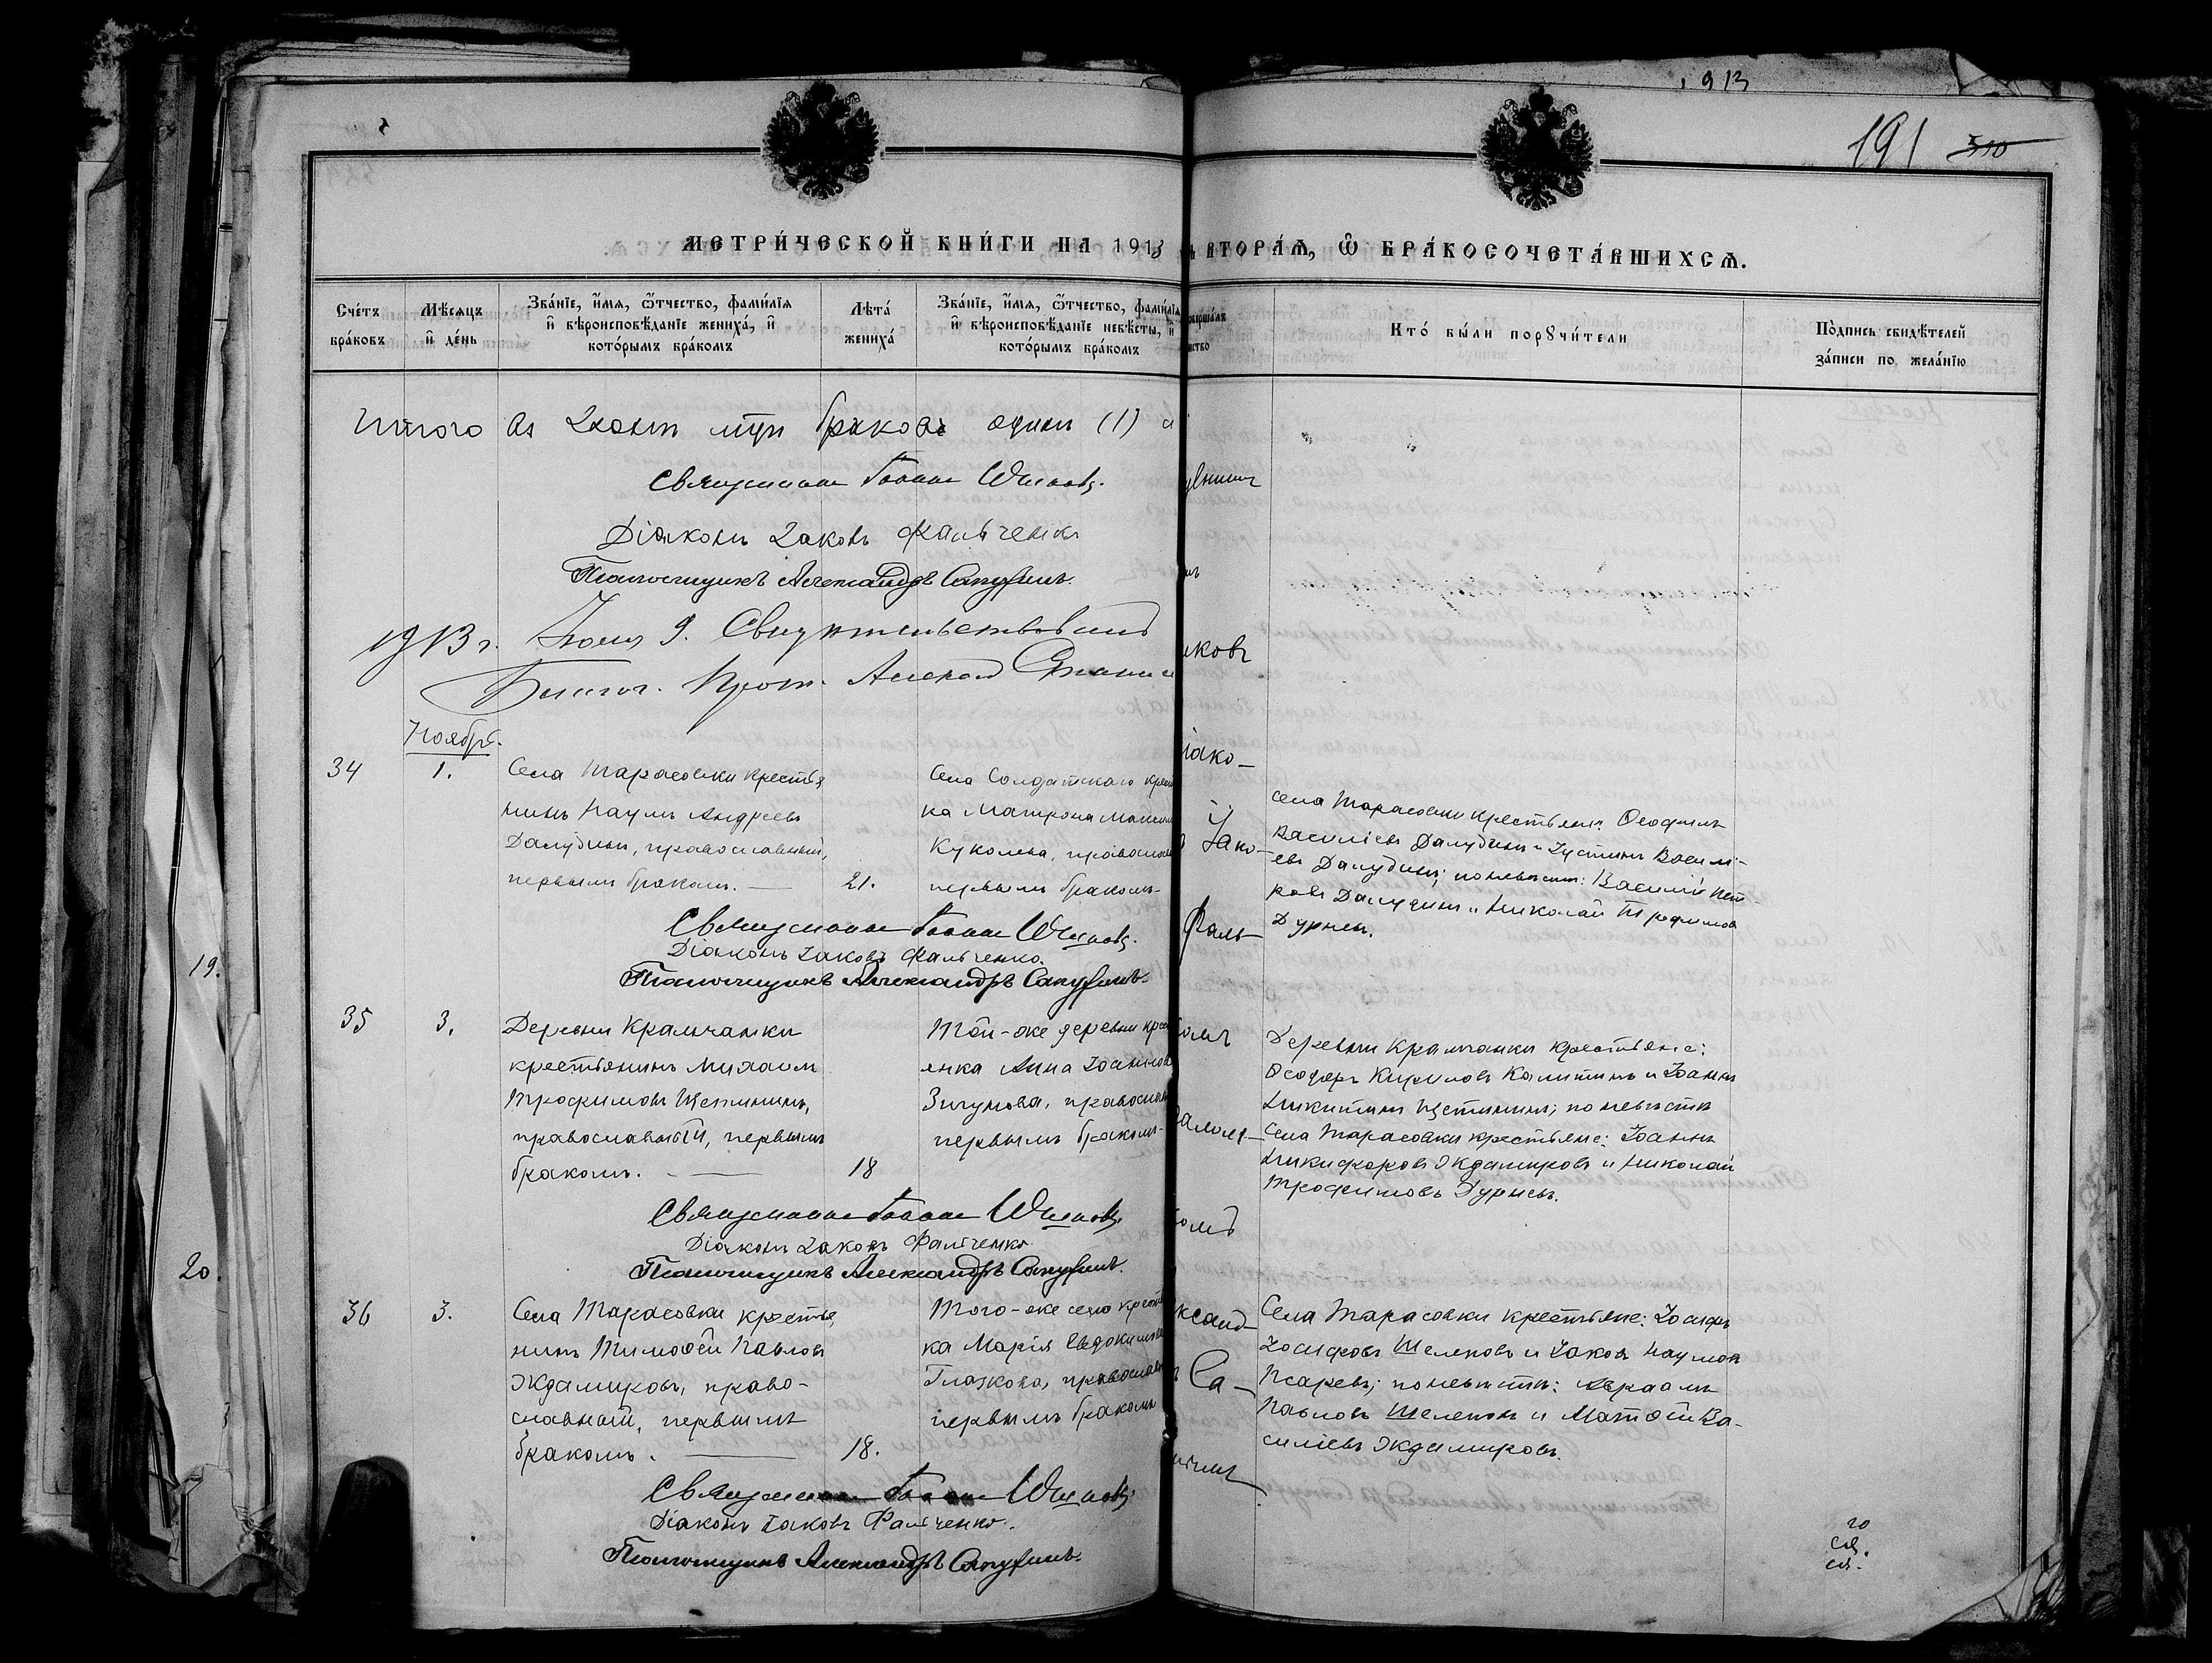 1913
191 310
МЕТРИ́ЧЕСКОЙ КНИ́ГИ НА 1913
ВТОРА́Ѧ, Ѽ БРА́КОСОЧЕТА́ВШИХСѦ.
Сче́тъ бра́ковъ
Мѣ́сяцъ и҆ де́нь
Зва́нїе, и҆́мѧ, ѻ҆́тчество, фами́лїѧ и҆ вѣроисповѣ́данїе жениха́, и҆ кото́рымъ бра́комъ
Лѣта́ жениха́
Зва́нїе, и҆́мѧ, ѻ҆́тчество, фами́лїѧ и҆ вѣроисповѣ́данїе невѣ́сты, и҆ кото́рымъ бра́комъ
Кто́ бы́ли порꙋчи́тели
По́дпись свидѣ́телей за́писи по жела́нїю
Итого въ Іюнѣ мцѣ браковъ одинъ (1)
Священникъ Іоаннъ
Діаконъ Іаковъ Фальченко
Псаломщикъ Александръ
1913 г. 9. Свидѣтельствовалъ
Благоч. Прот. Александ
Ноябрь.
34
1.
Села Тарасовки крестья
нинъ Наумъ Андреевъ
Далудинъ, православный,
первымъ бракомъ. — 21.
Села Солдатскаго крест
ка Матрона
Куколева, православ
первымъ бракомъ
Села Тарасовки крестьяне: Ѳеофилъ
Василіевъ Далудинъ и Іустинъ Васили-
евъ Далудинъ; по невѣстѣ: Василій Пет-
ровъ Далудинъ и Николай Трофимов
Дурневъ.
Священникъ Іоаннъ
Діаконъ Іаковъ Фальченко.
Псаломщикъ Александръ
Фаль-
19.
35
3.
Деревни Крамчанки
крестьянинъ Михаилъ
Трофимовъ Щетининъ,
православный, первымъ
бракомъ. — 18
Той-же деревни крест
янка Анна Іоаннова
Зигунова, православ
первымъ бракомъ-
Деревни Крамчанки крестьяне:
Ѳеодоръ Кириловъ Калитинъ и Іоаннъ
Никитинъ Щетининъ; по невѣстѣ
Села Тарасовки крестьяне: Іоаннъ
Никифоровъ Ждамировъ и Николай
Трофимовъ Дурневъ.
Священникъ Іоаннъ
Діаконъ Іаковъ Фальченко.
Псаломщикъ Александръ
20.
36
3.
Села Тарасовки крестья
нинъ Тимоѳей Павловъ
Ждамировъ, право-
славный, первымъ
бракомъ. — 18.
Того-же села крестьян
ка Марія Евдокимова
Глазкова, православ
первымъ бракомъ
Села Тарасовки крестьяне: Іосифъ
Іосифовъ Шелеповъ и Іаковъ Наумов
Псаревъ; по невѣстѣ: Авраамъ
Павловъ Шелеповъ и Матѳей Ва-
силіевъ Ждамировъ.
Священникъ Іоаннъ
Діаконъ Іаковъ Фальченко.
Псаломщикъ Александръ
го
ся.
ся.